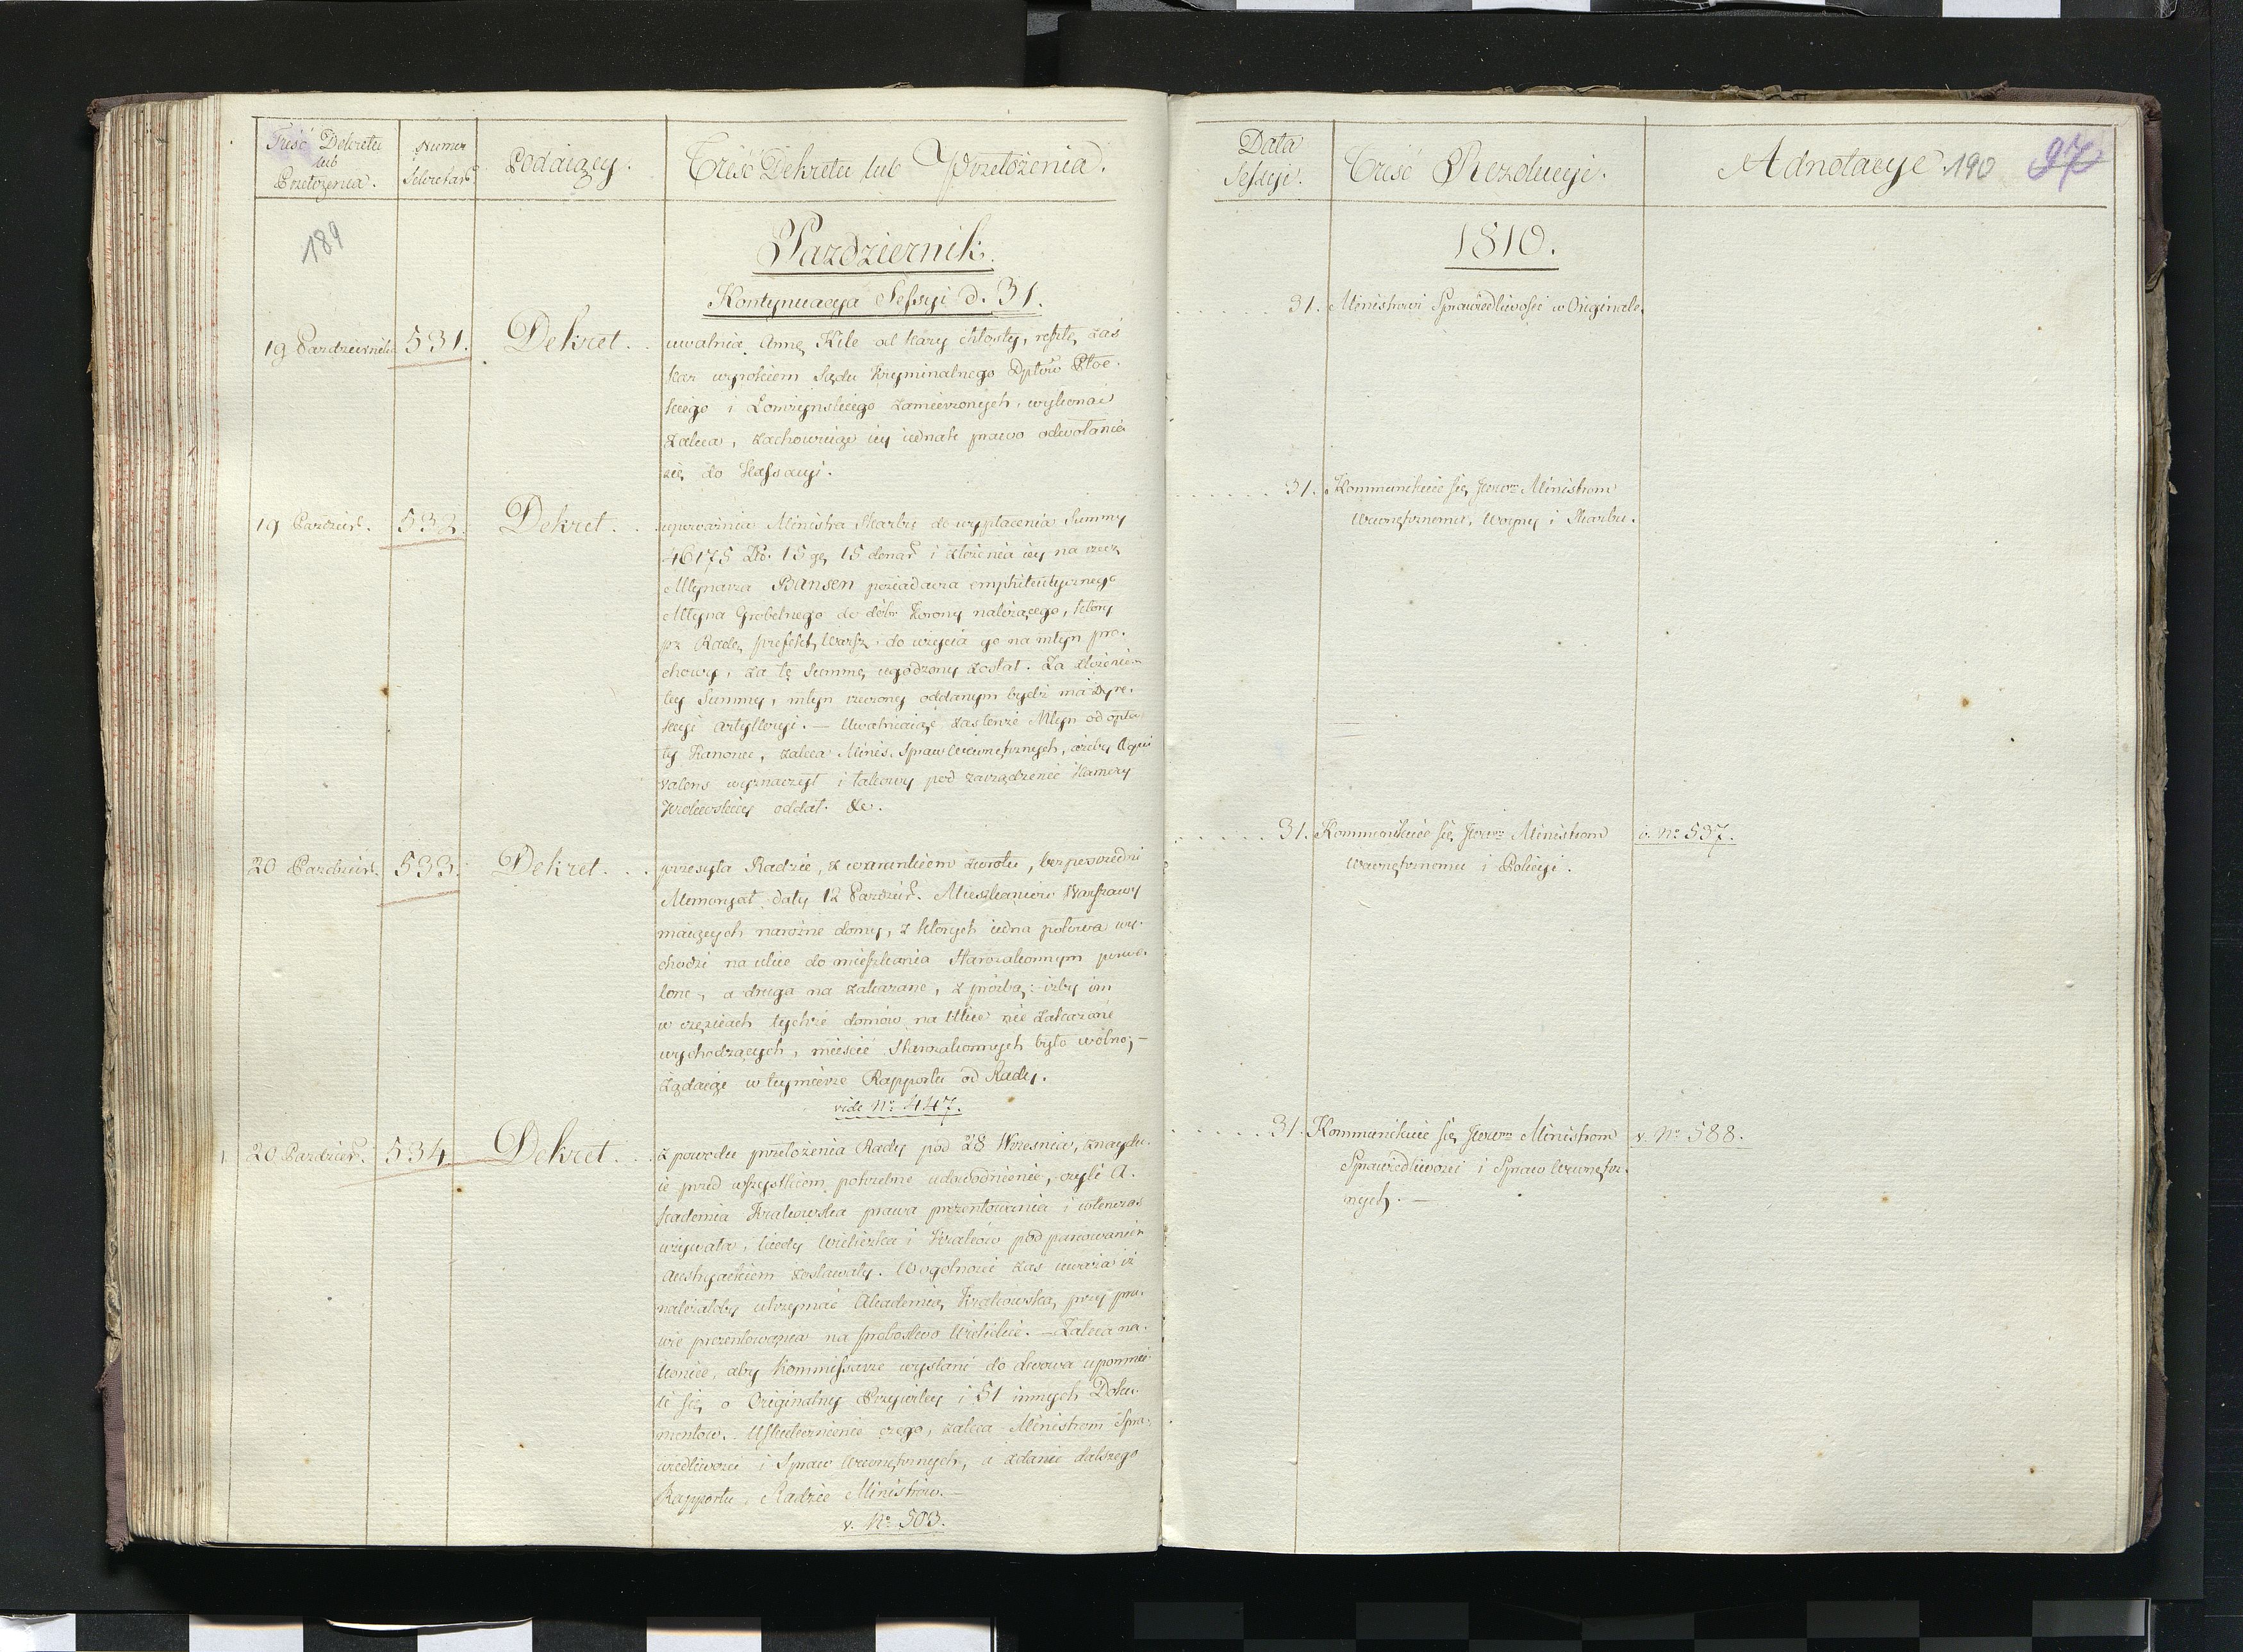 Treść Dekretu
lub
Przełożenia.
Numer
Sekretar.
Podaiący.
Treść Dekretu lub Przełożenia.
189
Pazdziernik.
Kontynuacya Sessyi d. 31.
19 Pazdziernika
531.
Dekret.
uwalnia Annę Kile od kary chłosty, resztę zaś
kar wyrokiem Sądu Kryminalnego Dpttów Płoc-
kiego i Łomżynskiego zamierzonych, wykonać
zaleca, zachowuiąc iey iednak prawo odwołania
się do Kassacyi.
19 Pazdzier.
532.
Dekret.
upoważnia Ministra Skarbu do wypłacenia Summy
46175 Zło. 15 gr. 15 denar i złożenia iey na rzecz
Młynarza Bansen posiadacza emphiteutycznego
Młyna Grobelnego do dóbr Korony należącego, który
pz Radę Prefekt. Warsz. do użycia go na młyn pro-
chowy, za tę Summę ugodzony został. Za złożeniem
tey Summy, młyn rzeczony oddanym bydź ma Dyre-
kcyi Artylleryi. — Uwalniaiąc zaś tenże Młyn od opła-
ty Kanonu, zaleca Minis. Spraw Wewnętrznych, ażeby Aqui
valens wyznaczył i takowy pod zarządzenie Kamery
Krolewskiey oddał. &c.
20 Pazdzier.
533.
Dekret.
przesyła Radzie, z warunkiem zwrotu, bezpośredni
Memoryał daty 12 Pazdzier. Mieszkańców Warszawy
maiących narożne domy, z których iedna połowa wy-
chodzi na ulice do mieszkania Starozakonnym pozwo-
lone, a druga na zakazane, z prośbą: iżby im
w częściach tychże domów na Ulice nie zakazane
wychodzących, mieścić Starozakonnych było wolno; —
żądaiąc w tey mierze Rapportu od Rady.
vide No 447.
20 Pazdzier.
534.
Dekret.
z powodu przełożenia Rady pod 28 Września, znaydu-
ie przed wszystkiem potrzebne udowodnienie, czyli A-
kademia Krakowska prawa prezentowania i wtenczas
używała, kiedy Wieliczka i Kraków pod panowaniem
Austryackiem zostawały. W ogolności zaś uważa iż
należałoby utrzymać Akademią Krakowską przy pra-
wie prezentowania na probostwo Wielickie. — Zaleca na-
koniec, aby Kommissarze wysłani do Lwowa upomnie-
li się o Originalny Przywiley i 51 innych Doku-
mentów. Uskutecznienie czego, zaleca Ministrom Spra-
wiedliwości i Spraw Wewnętrznych, a zdanie dalszego
Rapportu, Radzie Ministrów. —
v. No 503.
Data
Sessyi.
Treść Rezolucyi.
Adnotacye.
190
97
1810.
31. Ministrowi Sprawiedliwości w Originale.
31. Kommunikuie się Ministrom
Wewnętrznemu, Woyny i Skarbu.
31. Kommunikuie się Ministrom
Wewnętrznemu i Policyi.
v. No 537.
31. Kommunikuie się Ministrom
Sprawiedliwości i Spraw Wewnętrz-
nych. —
v. No 588.